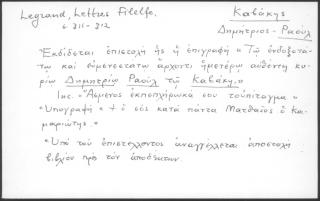 Legrand, Lettres Filelfe.
σ 311-312
Καβάκης
Δημήτριος - Ραούλ
"Εκδίδεται ἐπιστολή ἧς ἡ ἐπιγραφή "Τῷ ἐνδοξοτά-
τῳ καί εὐμενεστάτῳ ἄρχοντι ἡμετέρῳ αὐθέντῃ κυ-
ρίῳ Δημητρίῳ Ραούλ τῷ Καβάκῃ."
Inc. "Ἄσμενος ἐκπεπλήρωκά σου τοὐπίταγμα"
"Υπογραφή" + ὁ σός κατά πάντα Ματθαῖος ὁ Κα-
μαριώτης"
"Υπό τοῦ ἐπιστέλλοντος ἀναγγέλλεται ἀποστολή
βιβλίου πρός τόν ἀποδέκτην.